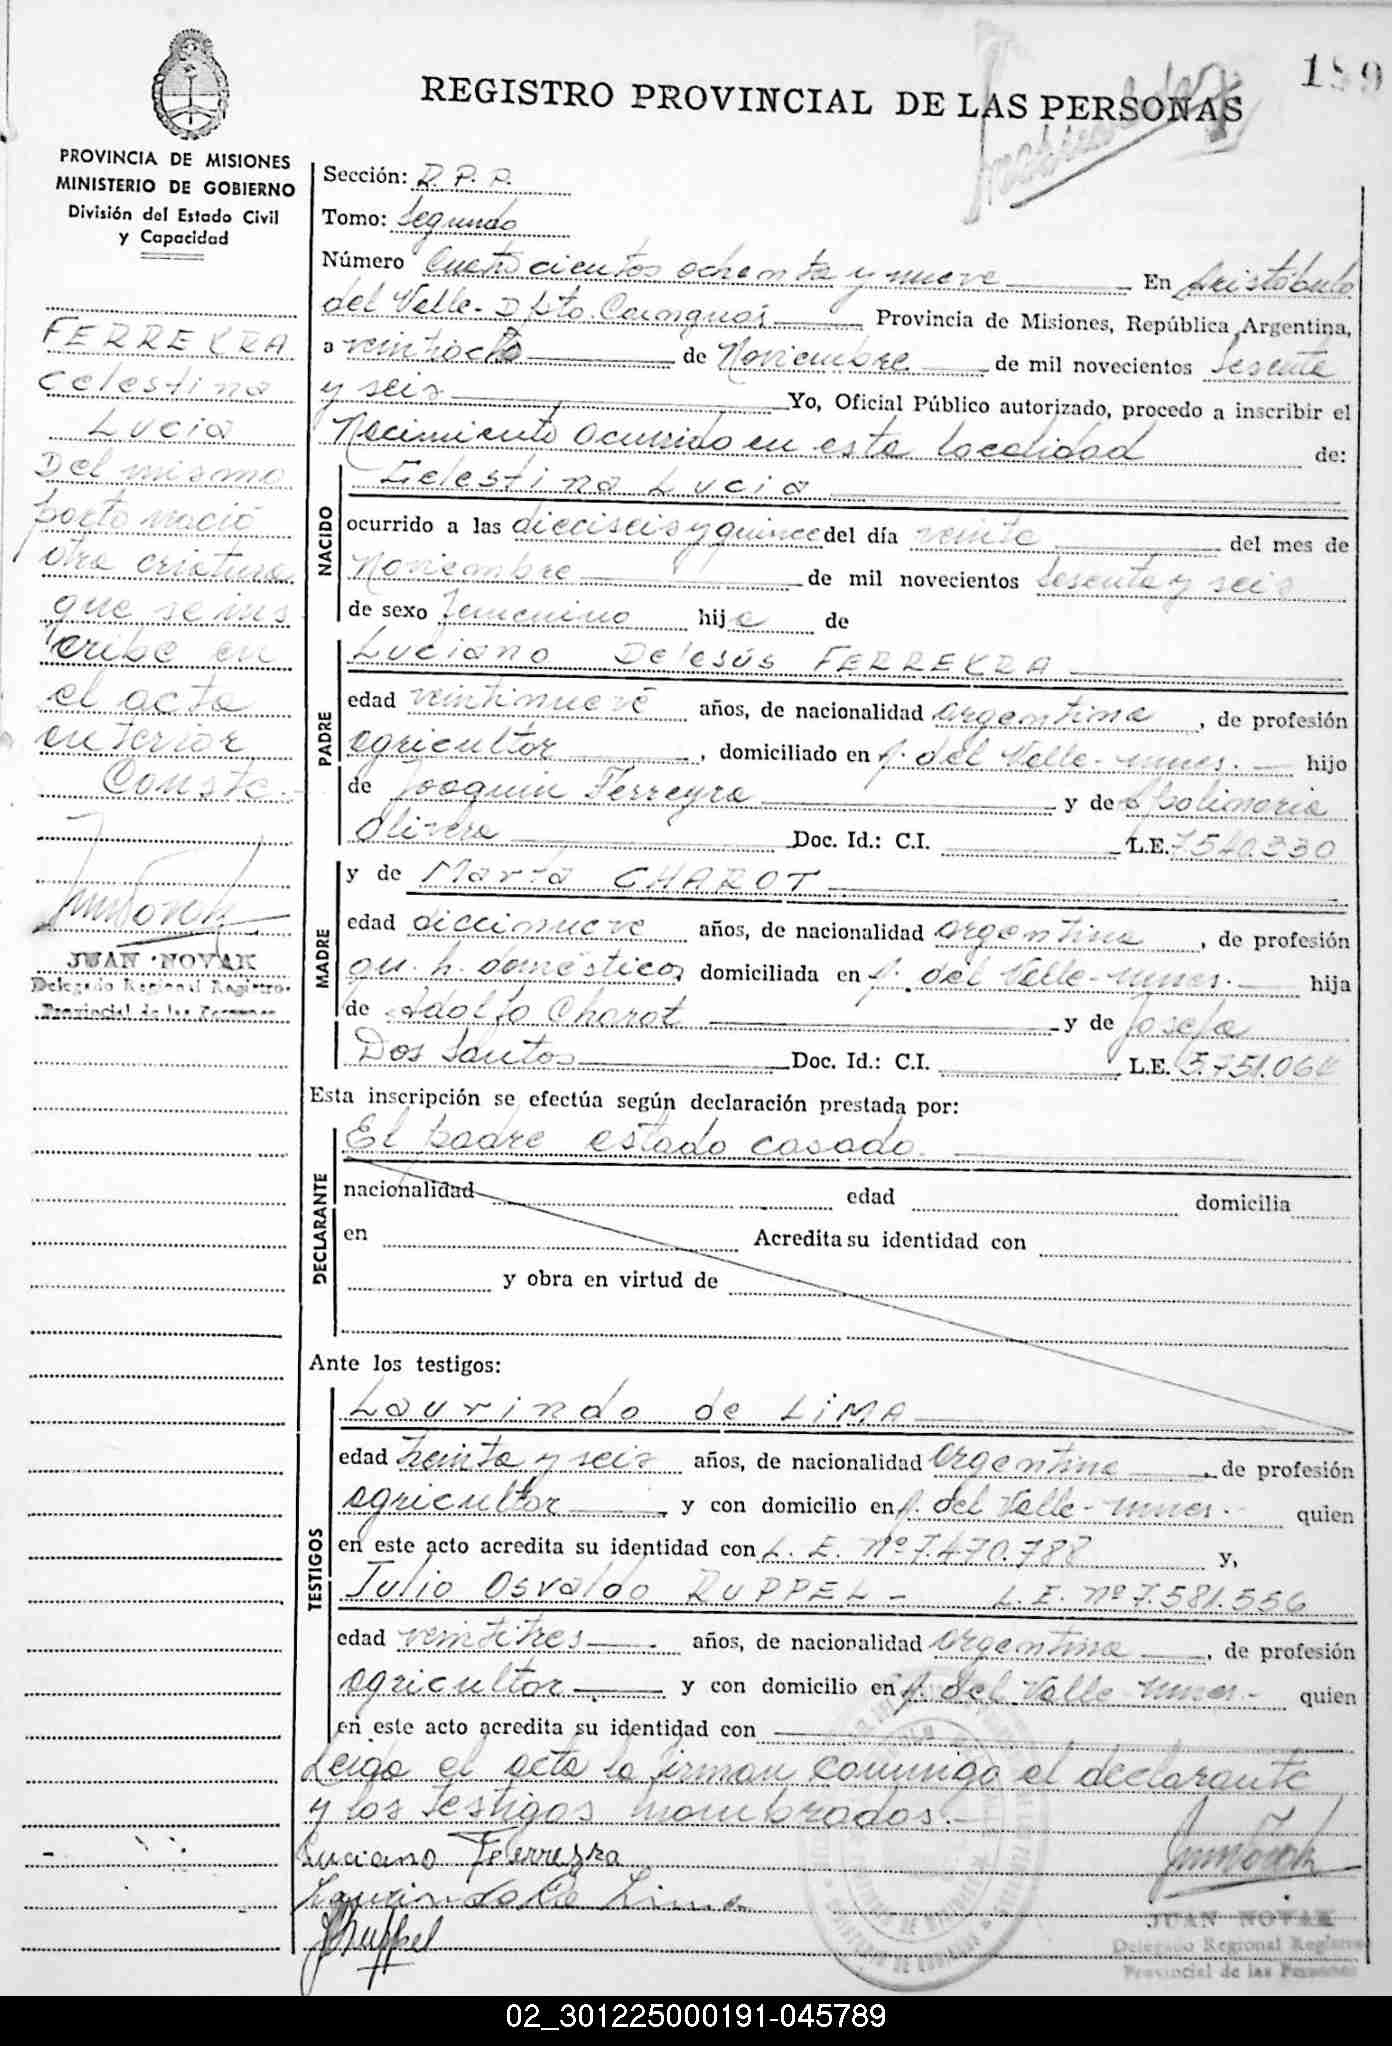 189
REGISTRO PROVINCIAL DE LAS PERSONAS
PROVINCIA DE MISIONES
MINISTERIO DE GOBIERNO
División del Estado Civil
y Capacidad
FERREYRA
Celestina
Lucia
Del mismo
parto nació
otra criatura
que se ins
cribe en
el acta
anterior
Conste.-
JUAN NOVAK
Delegado Regional Registro
Provincial de las Personas
Sección: R. P. P.
Tomo: Segundo
Número Cuatrocientos ochenta y nueve En Aristóbulo
del Valle - Dpto. Cainguás Provincia de Misiones, República Argentina,
a veintiocho de Noviembre de mil novecientos Sesenta
y seis Yo, Oficial Público autorizado, procedo a inscribir el
Nacimiento Ocurrido en esta localidad de:
NACIDO
Celestina Lucia
ocurrido a las dieciseis y quince del día veinte del mes de
Noviembre de mil novecientos Sesenta y seis
de sexo femenino hija de
PADRE
Luciano DeJesús FERREYRA
edad veintinueve años, de nacionalidad argentina, de profesión
agricultor, domiciliado en A. del Valle - mnes. hijo
de Joaquin Ferreyra y de Apolinaria
Olivera Doc. Id.: C.I. L.E. 7.540.330
MADRE
y de Marta CHAROT
edad diecinueve años, de nacionalidad argentina, de profesión
qu. h. domésticos domiciliada en A. del Valle - mnes. hija
de Adolfo Charot y de Josefa
Dos Santos Doc. Id.: C.I. L.E. 5.751.064
Esta inscripción se efectúa según declaración prestada por:
DECLARANTE
El padre estado casado.
nacionalidad edad domicilia
en Acredita su identidad con
y obra en virtud de
Ante los testigos:
TESTIGOS
Laurindo de LiMA
edad treinta y seis años, de nacionalidad argentina, de profesión
agricultor y con domicilio en A. del Valle - mnes. - quien
en este acto acredita su identidad con L. E. nº 7.470.788 y,
Julio Osvaldo RUPPEL - L. E. nº 7.581.556
edad veintitres años, de nacionalidad argentina, de profesión
agricultor y con domicilio en A. del Valle - mnes. - quien
en este acto acredita su identidad con
Leida el acta la firman conmigo el declarante
y los testigos nombrados.-
Luciano Ferreyra
Laurindo de Lima
JRuppel
JUAN NOVAK
Delegado Regional Registro
Provincial de las Personas
02_301225000191-045789